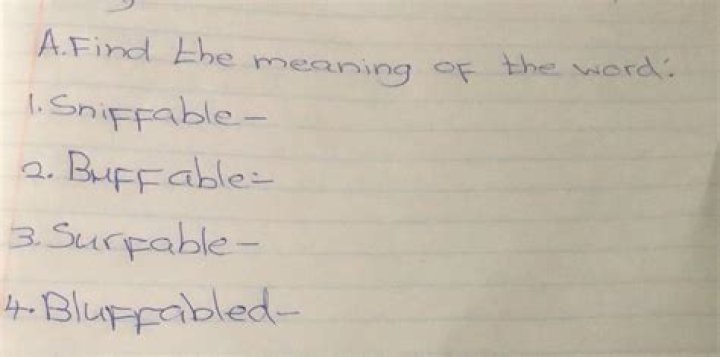 A. Find the meaning of the word:
1. Sniffable-
2. Buffable:-
3. Surfable-
4. Bluffabled-